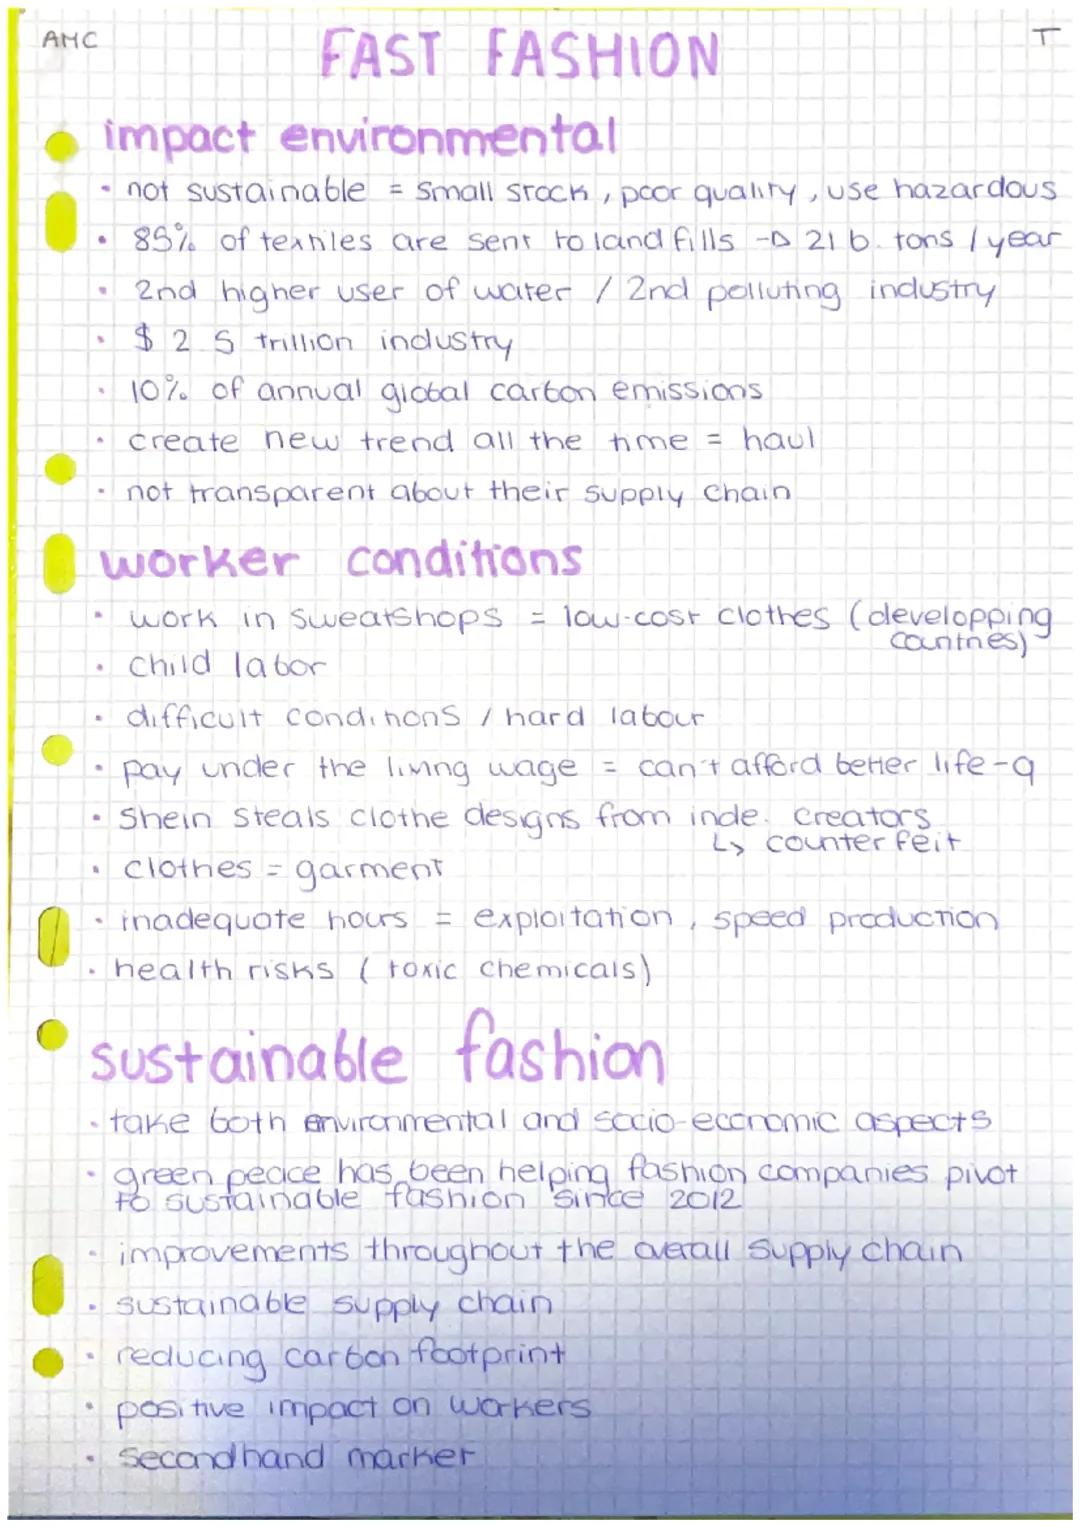 AMC
FAST FASHION
T
impact environmental
• not sustainable = small stock, poor quality, use hazardous
• 85% of textiles are sent to landfills -D 21 b. tons / year
• 2nd higher user of water / 2nd polluting industry
• $ 2.5 trillion industry
• 10% of annual global carbon emissions
• create new trend all the time = haul
• not transparent about their supply chain
worker conditions
• work in sweatshops = low-cost clothes (developping
countries)
• child labor
• difficult conditions / hard labour
• pay under the living wage = can't afford better life-q
• Shein steals clothe designs from inde. creators
↳ counterfeit
• clothes = garment
• inadequate hours = exploitation, speed production
• health risks (toxic chemicals)
sustainable fashion
• take both environmental and socio-economic aspects
• green peace has been helping fashion companies pivot
to sustainable fashion since 2012
• improvements throughout the overall supply chain
• sustainable supply chain
• reducing carbon footprint
• positive impact on workers
• secondhand market